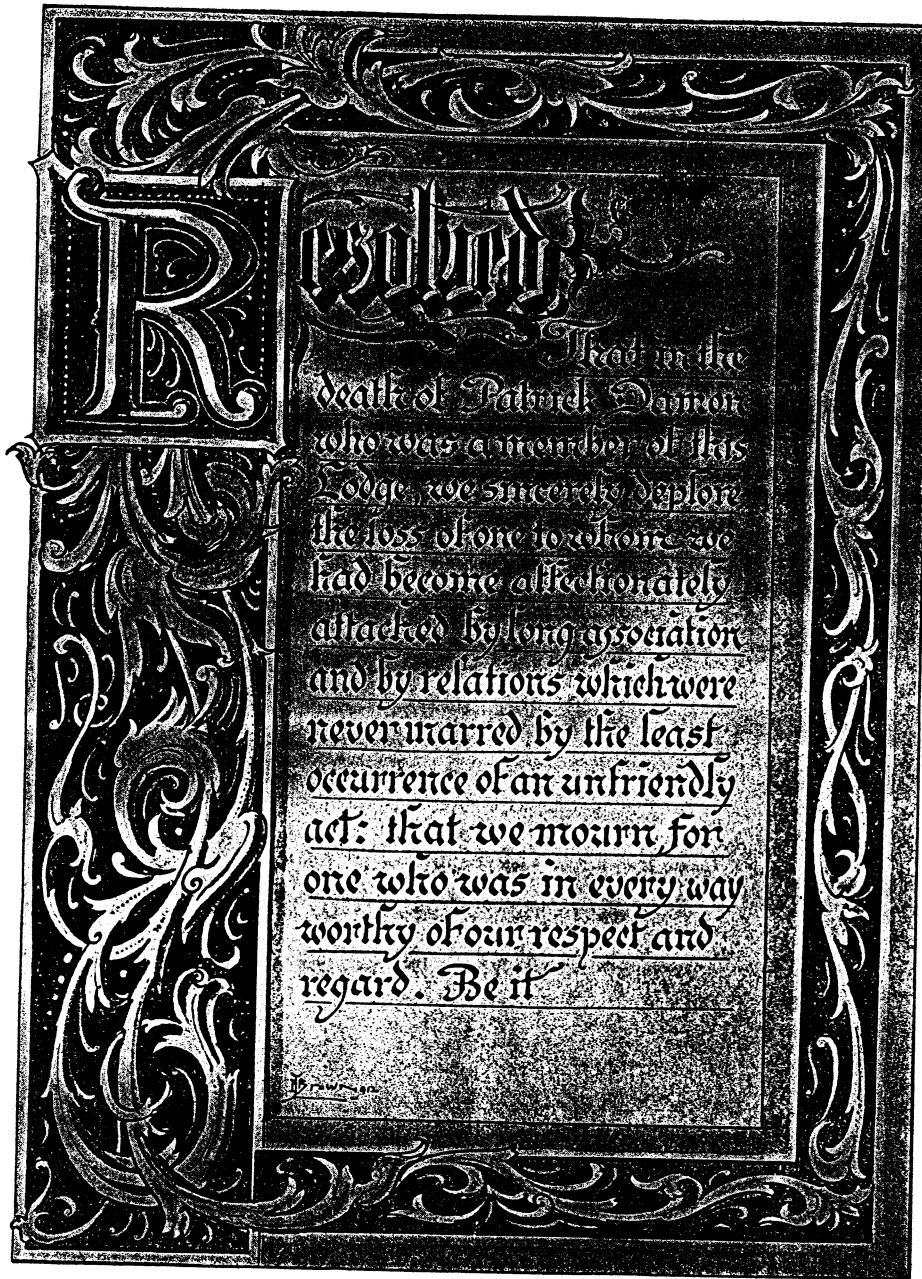 Resolved
That in the
death of Patrick Damon
who was a member of this
Lodge, we sincerely deplore
the loss of one to whom we
had become affectionately
attached by long association
and by relations which were
never marred by the least
occurrence of an unfriendly
act: that we mourn for
one who was in every way
worthy of our respect and
regard. Be it